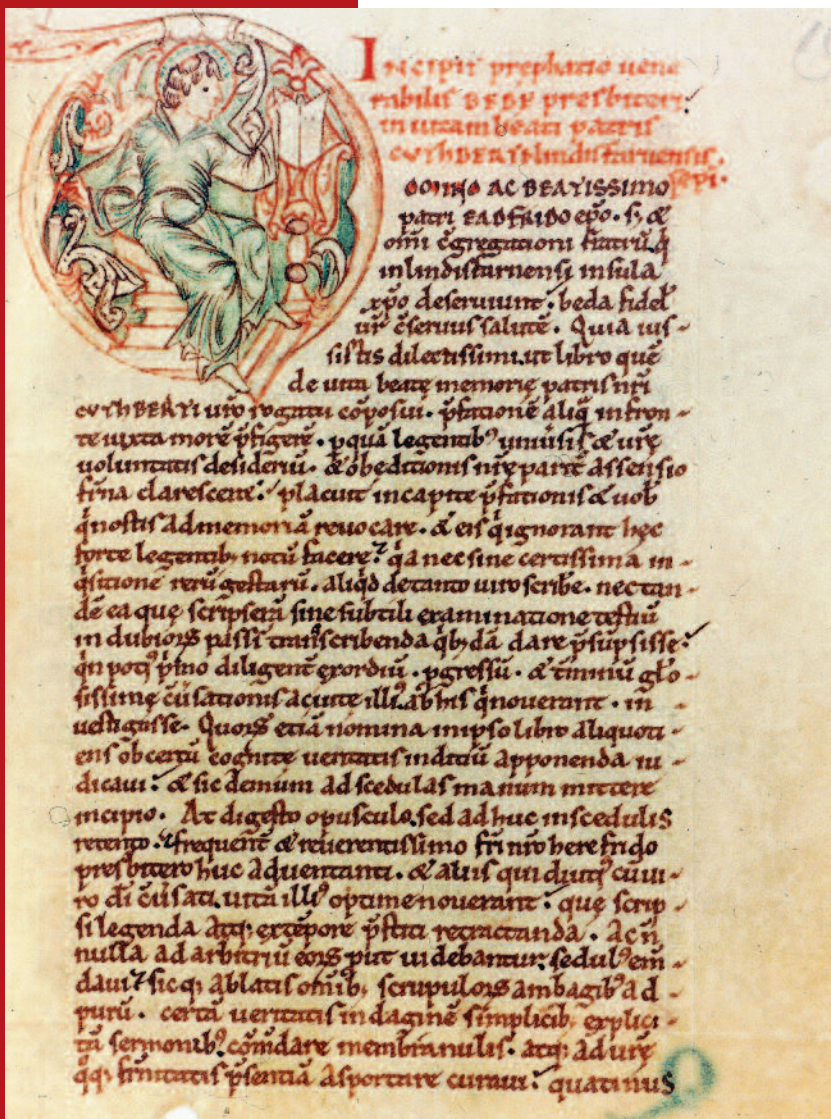 INCIPIT prephatio uene
rabilis BEDE presbiteri.
in uitam beati patris
CUTHBERTI lindisfarnensis.
epi.
DOMNO AC BEATISSIMO
patri EADFRIDO epo. s; &
omi cgregationi fratrū q̄
in lindisfarnensi insula
xpo deseruiunt. beda fidel'
ur̄ c̄seruus salutē. Quia ius-
sistis dilectissimi. ut libro quē
de uita beatę memorię patris nr̄i
CUTHBERTI uro rogatu cōposui. p̄fationē aliq̄ in fron-
te iuxta morē p̄figerē. p quā legentib' uniuersis & urę
uoluntatis desideriū. & obeditionis nrę parit̄ assensio
fr̄na claresceret: placuit in capite p̄fationis & uob
q̄ nostis ad memoriā reuocare. & eis q̄ ignorant hęc
forte legentib; notū facere? q̄a nec sine certissima in-
q̄sitione rerū gestarū. aliq̄d de tanto uiro scribe. nec tan-
dē ea quę scripserā sine subtili examinatione testiū
in dubiorꝝ passī transcribenda q̄b;dā dare p̄supsisse:
q̄n poti' p̄mo diligent̄ exordiū. pgressū. & t̄minū glo-
sissimę c̄usationis ac uite illi' ab his q̄ nouerant. in-
uestigasse. Quorꝝ etiā nomina in ipso libro aliquoti-
ens ob certū cognitę ueritatis inditiū apponenda iu-
dicaui: & sic demum ad scedulas manum mittere
incipio. At digesto opusculo. sed adhuc in scedulis
retento. frequent̄ & reuerentissimo fr̄i nr̄o herefrido
presbitero huc aduentanti. & aliis qui diuti' cū ui-
ro dī c̄usati. uitā illi' optime nouerant: quę scrip-
si legenda atq; extēpore p̄stiti retractanda. Ac n̄
nulla ad arbitriū eorꝝ put uidebantur. sedul' em-
daui? sicq; ablatis omib; scrupulorꝝ ambagib' ad
purū. certā ueritatis indaginē simplicib; explici-
tā sermonib'. cōmdare membranulis. atq; ad urę
q̄q; fr̄nitatis p̄sentiā asportare curaui: quatinus